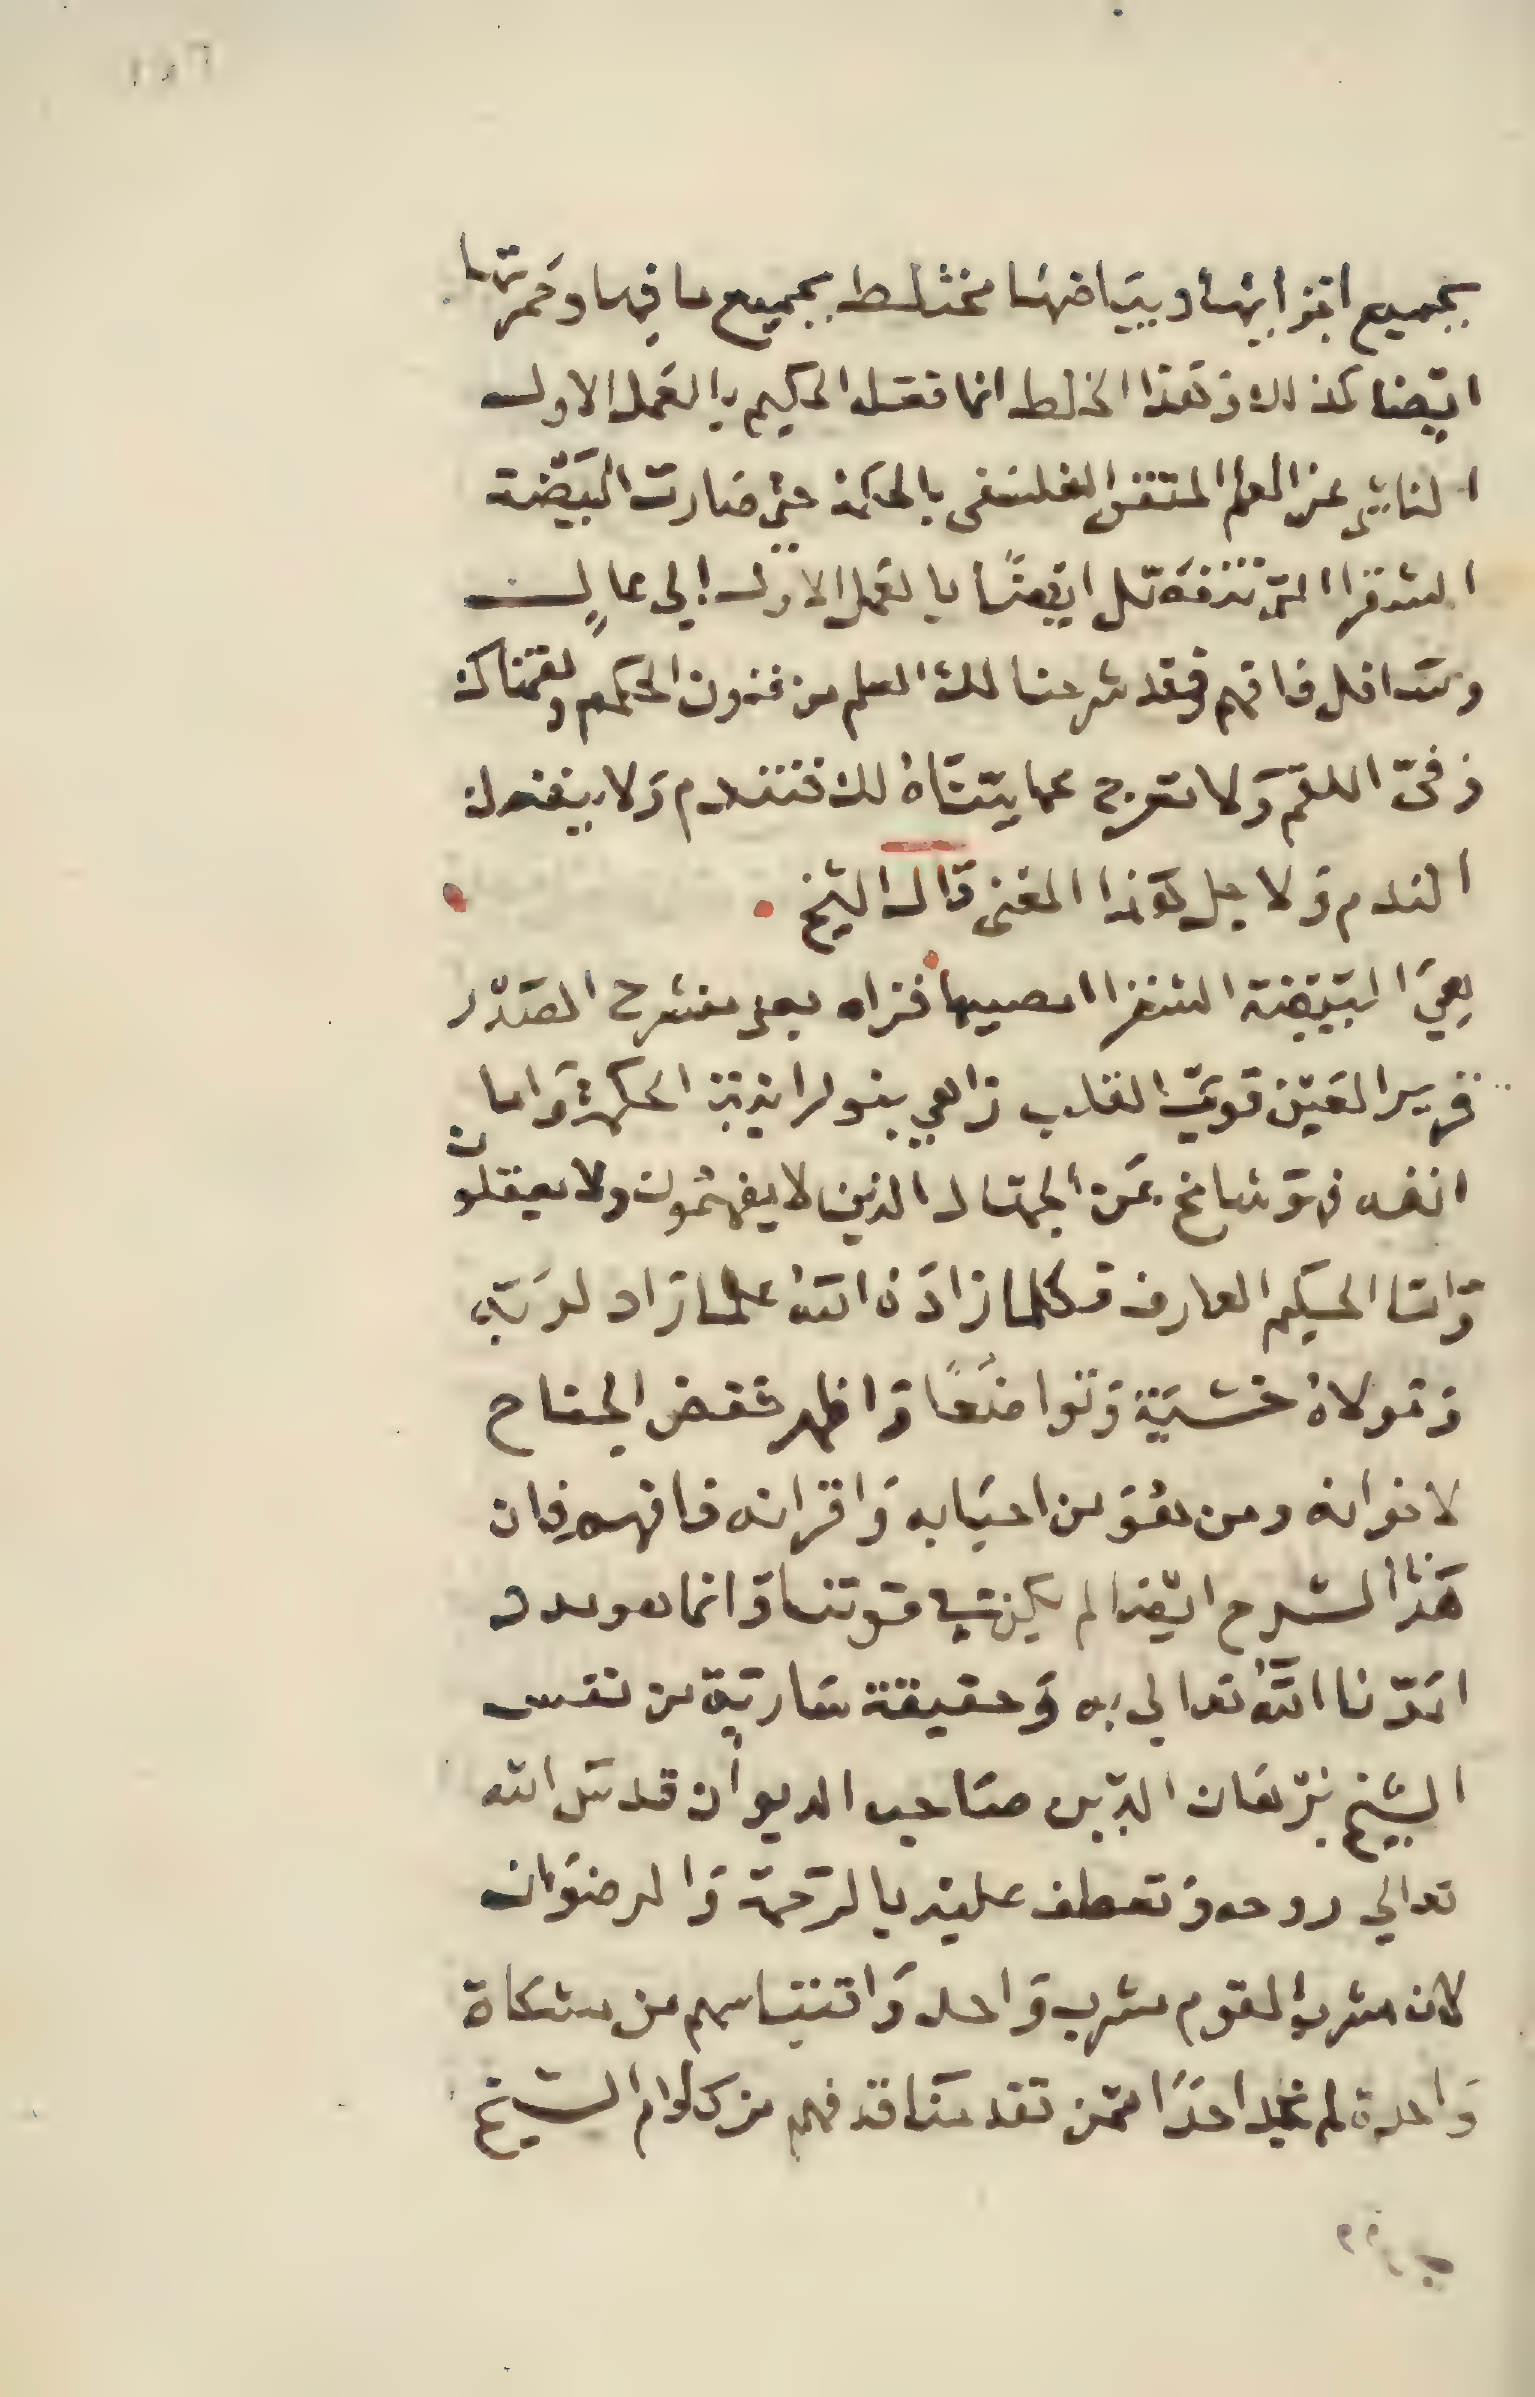 بجميع اجزايها وبياضها مختلط بجميع ما فيها وحمرتها
ايضا كذلك وهذا الخلط انما فعله الحكيم بالعمل الاول
الناشي عن العلم المتقن الفلسفي بالحكمة حتى صارت البيضة
الشقرا التي تنفصل ايضًا بالعمل الاول إلى عالٍ
وسافل فافهم فقد شرحنا لك العلم من فنون الحكم ولقمناك
زفيّ اللقم ولا تعرج عما بيّنّاهُ لك فتندم ولا ينفعك
الندم ولاجل هذا المعنى قال الشيخ
هيَ البيضة الشقرا فتراه منشرح الصدر
قرير العين قويّ القلب زاهي بنور الحكمة واما
انفه فهو شامخ عن الجهال الذين لا يفهمُون ولا يعقلون
واما الحكيم العارف فكلما زاده اللهُ علما زاد لربه
ومولاهُ خشية وتواضعًا واظهر خفض الجناح
لاخوانه ومن هو من احبابه واقرانه فافهم فان
هذا الشرح ايضا لم يكن قوتنا وانما هو مدد
امدّنا اللهُ تعالى به وحقيقة سارية من نفس
الشيخ برهان الدين صاحب الديوان قدس الله
تعالي روحه وتعطف عليه بالرحمة والرضوان
لان مشرب القوم مشرب واحد واقتباسهم من مشكاة
واحدة لم نجد احدًا ممن تقدمنا قد فهم من كلام الشيخ